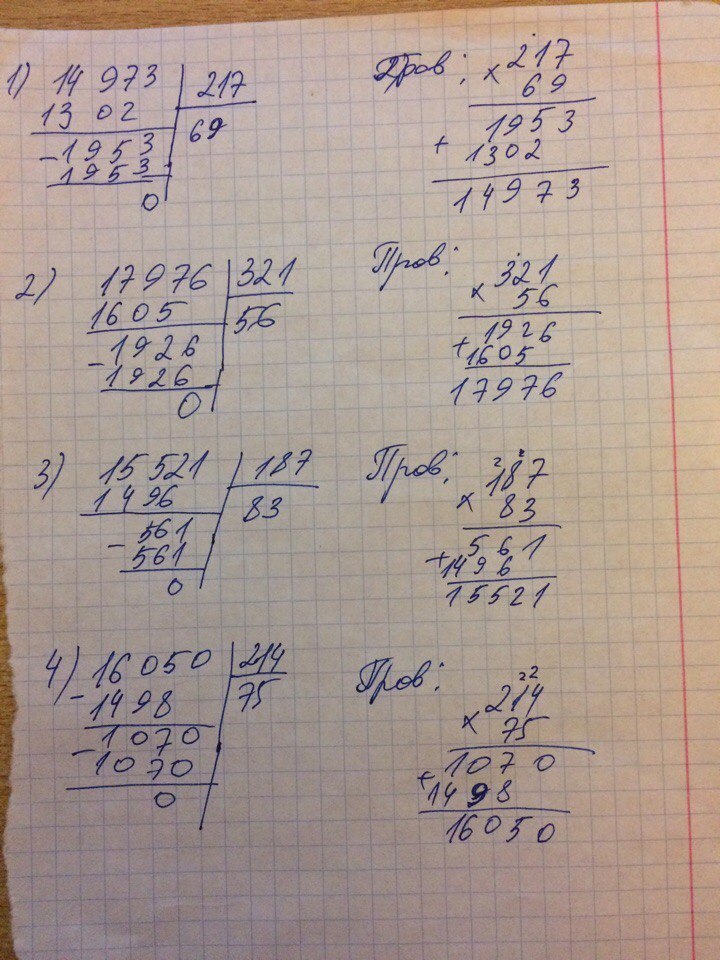 1) 14 973 | 217 Пров: 217
1302 | 69 × 69
- 1953 1953
1953 + 1302
0 14973
2) 17976 | 321 Пров: 321
1605 | 56 × 56
- 1926 + 1926
1926 1605
0 17976
3) 15 521 | 187 Пров: 2 2
1496 | 83 187
- 561 × 83
561 561
0 + 1496
15521
4) 16 050 | 214 Пров: 22
- 1498 | 75 214
- 1070 × 75
1070 1070
0 + 1498
16050